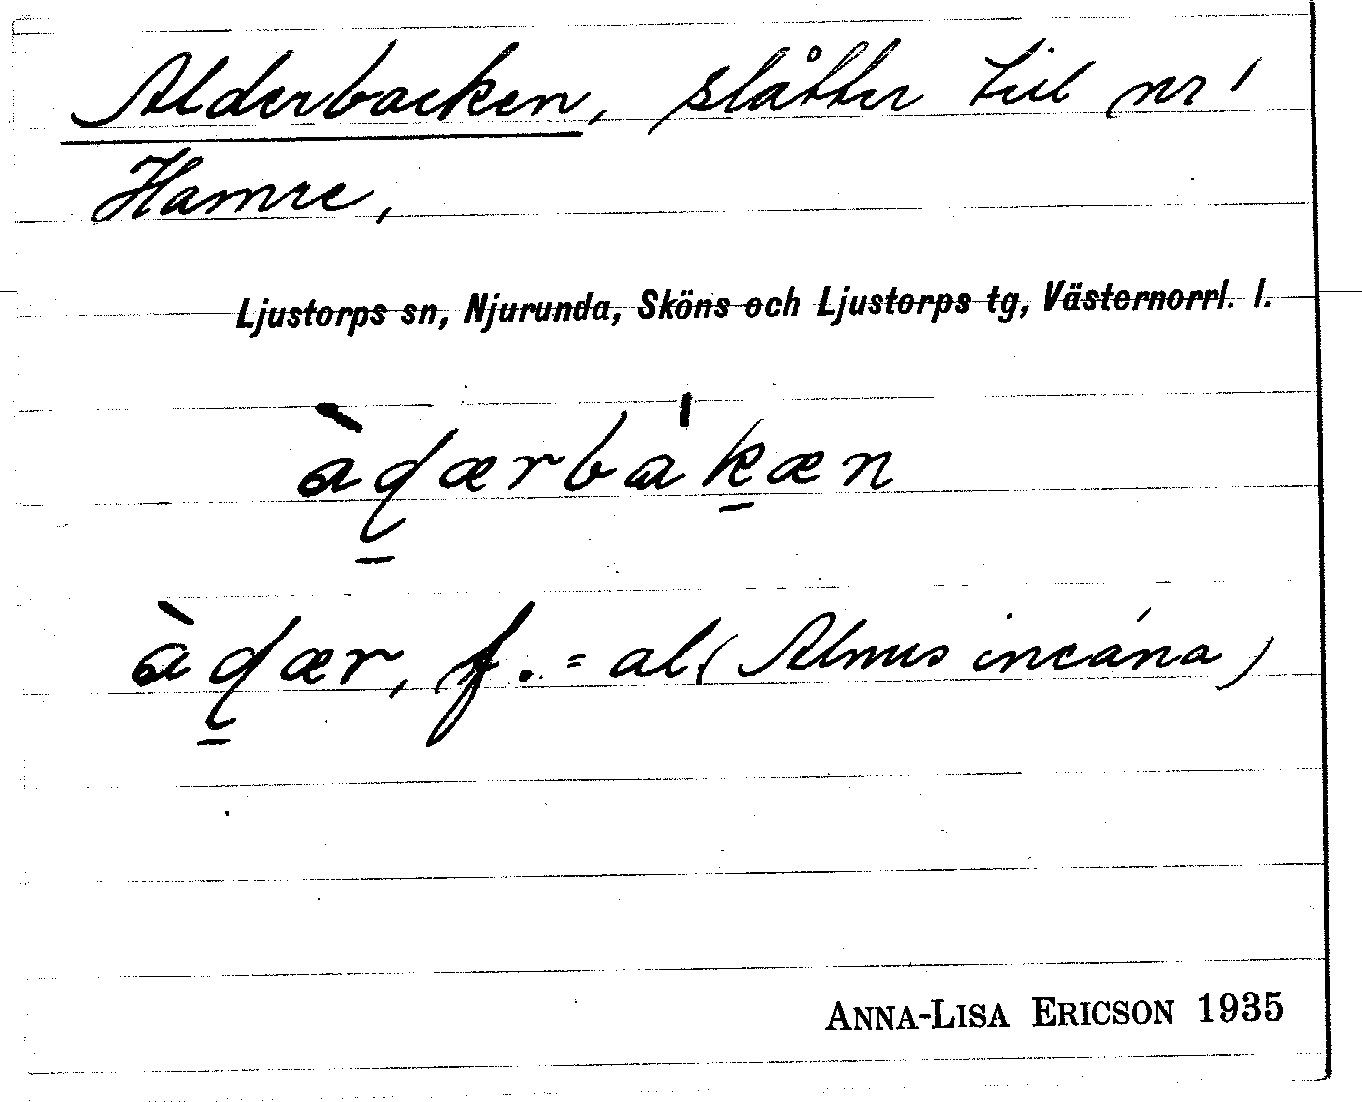 Alderbacken, slåtter till nr 1
Hamre,
Ljustorps sn, Njurunda, Sköns och Ljustorps tg, Västernorrl. l.
àɖærbàkæn
àɖær, f. = al (Alnus incána)
ANNA-LISA ERICSON 1935